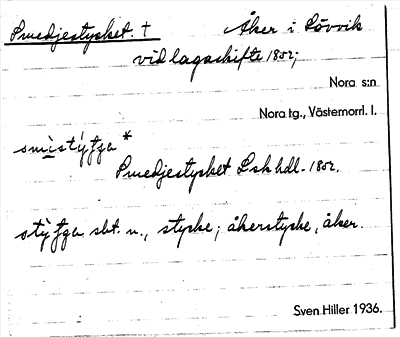 Smedjestycket. † Åker i Lövvik
vid lagaskifte 1852;
Nora s:n
Nora tg., Västernorrl. l.
smistýʃʒa *
Smedjestycket Lskhdl. 1852.
stỳʃʒa sbt. n., stycke; åkerstycke, åker.
Sven Hiller 1936.